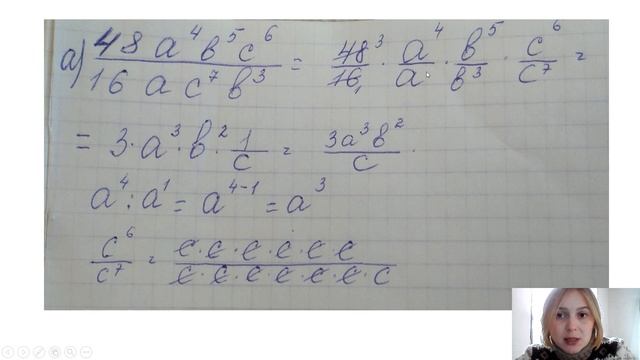 а) 48 a⁴ b⁵ c⁶ / 16 a c⁷ b³ = 48³ / 16₁ · a⁴ / a · b⁵ / b³ · c⁶ / c⁷ =
= 3 · a³ · b² · 1 / c = 3a³b² / c .
a⁴ : a¹ = a⁴⁻¹ = a³
c⁶ / c⁷ = c · c · c · c · c · c / c · c · c · c · c · c · c